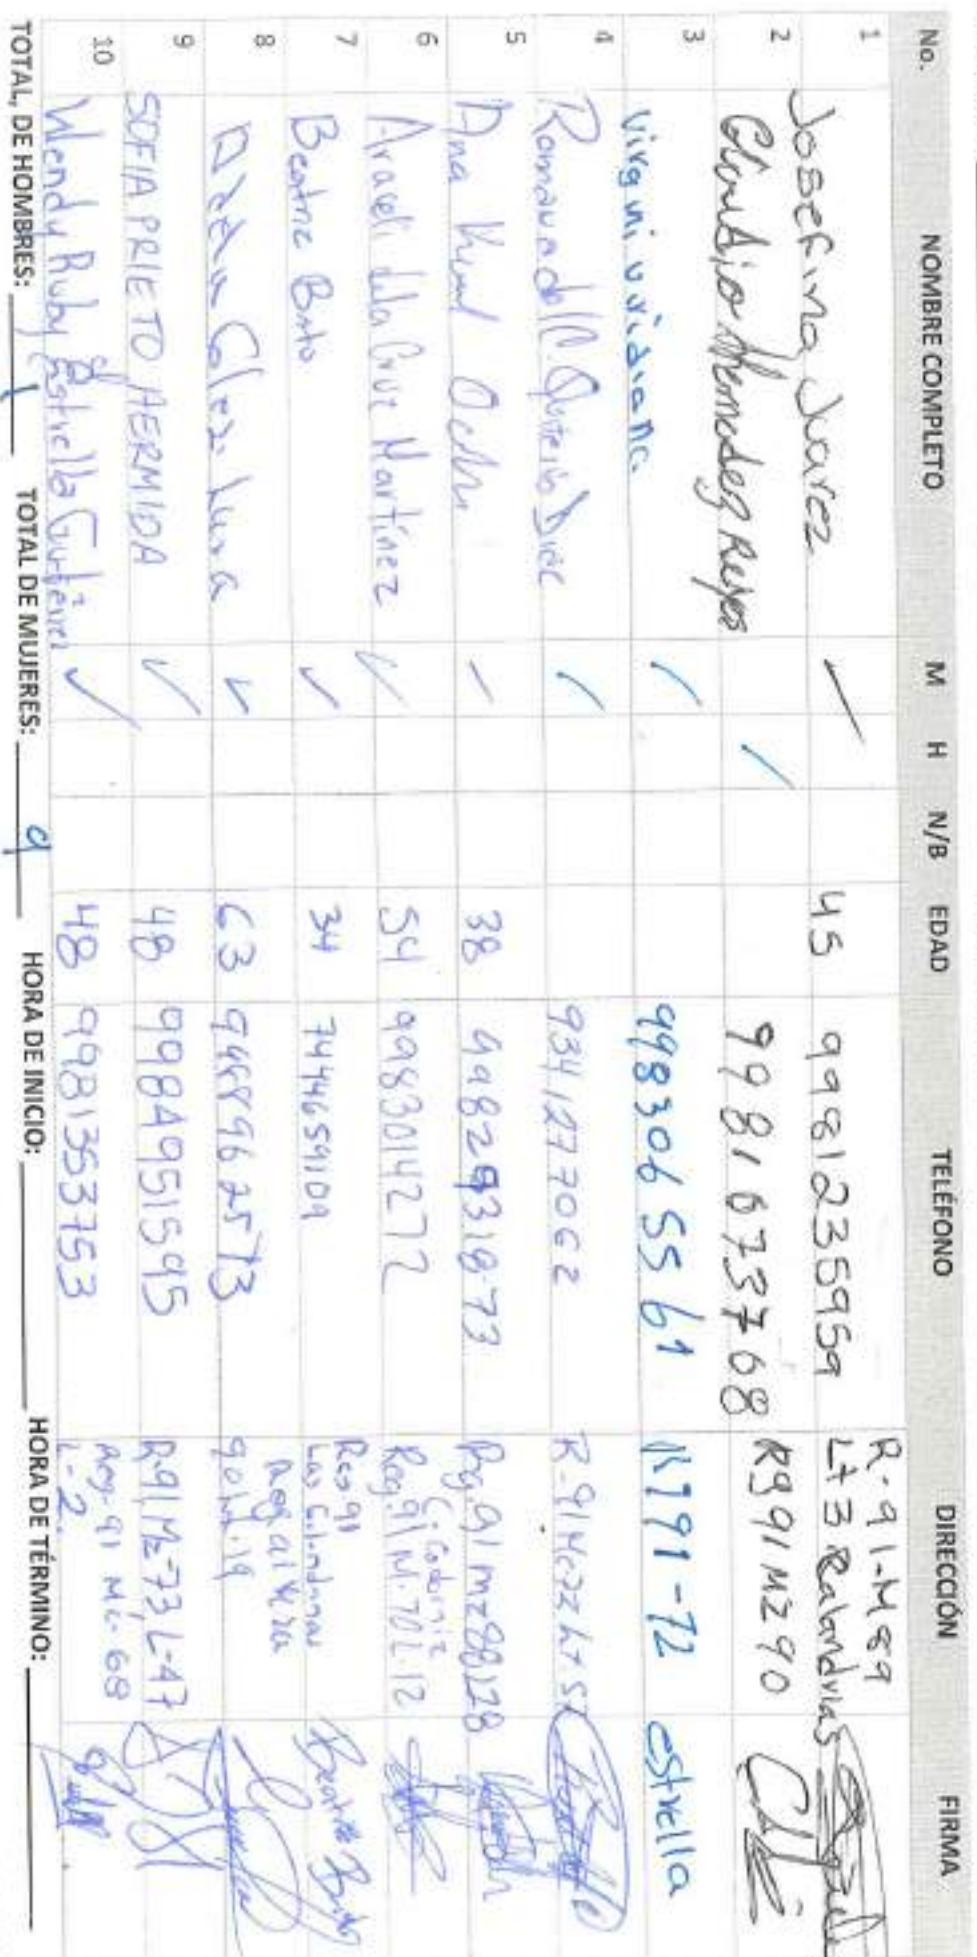 No. NOMBRE COMPLETO M H N/B EDAD TELÉFONO DIRECCIÓN FIRMA
1 Josefina Juarez / 45 9981235959 R-91-M89 Lt 3 Calandrias
2 Claudio Hernadez Reyes / 9981673768 R991 MZ 90
3 Virginia viridiana / 9983065561 R791-72 estrella
4 Romana del C. / 9341277062 R-91
5 Ana / 38 Rg. 91 mz 88 L28
6 Araceli dela Cruz Martínez / 54 9983014272 C. Codorniz Reg. 91 M-70 L 12
7 Beatriz Brito ✓ 34 7444659109 Reg 91 Las Golondrinas Beatriz Brito
8 ✓ 63
9 SOFIA PRIETO HERMIDA ✓ 48 9984951595 R-91 Mz-73, L-47
10 Wendy Ruby Estrella Gutiérrez ✓ 48 9981353753 Reg-91 Mz-68 L-2
TOTAL, DE HOMBRES: 1 TOTAL DE MUJERES: 9 HORA DE INICIO: HORA DE TÉRMINO: